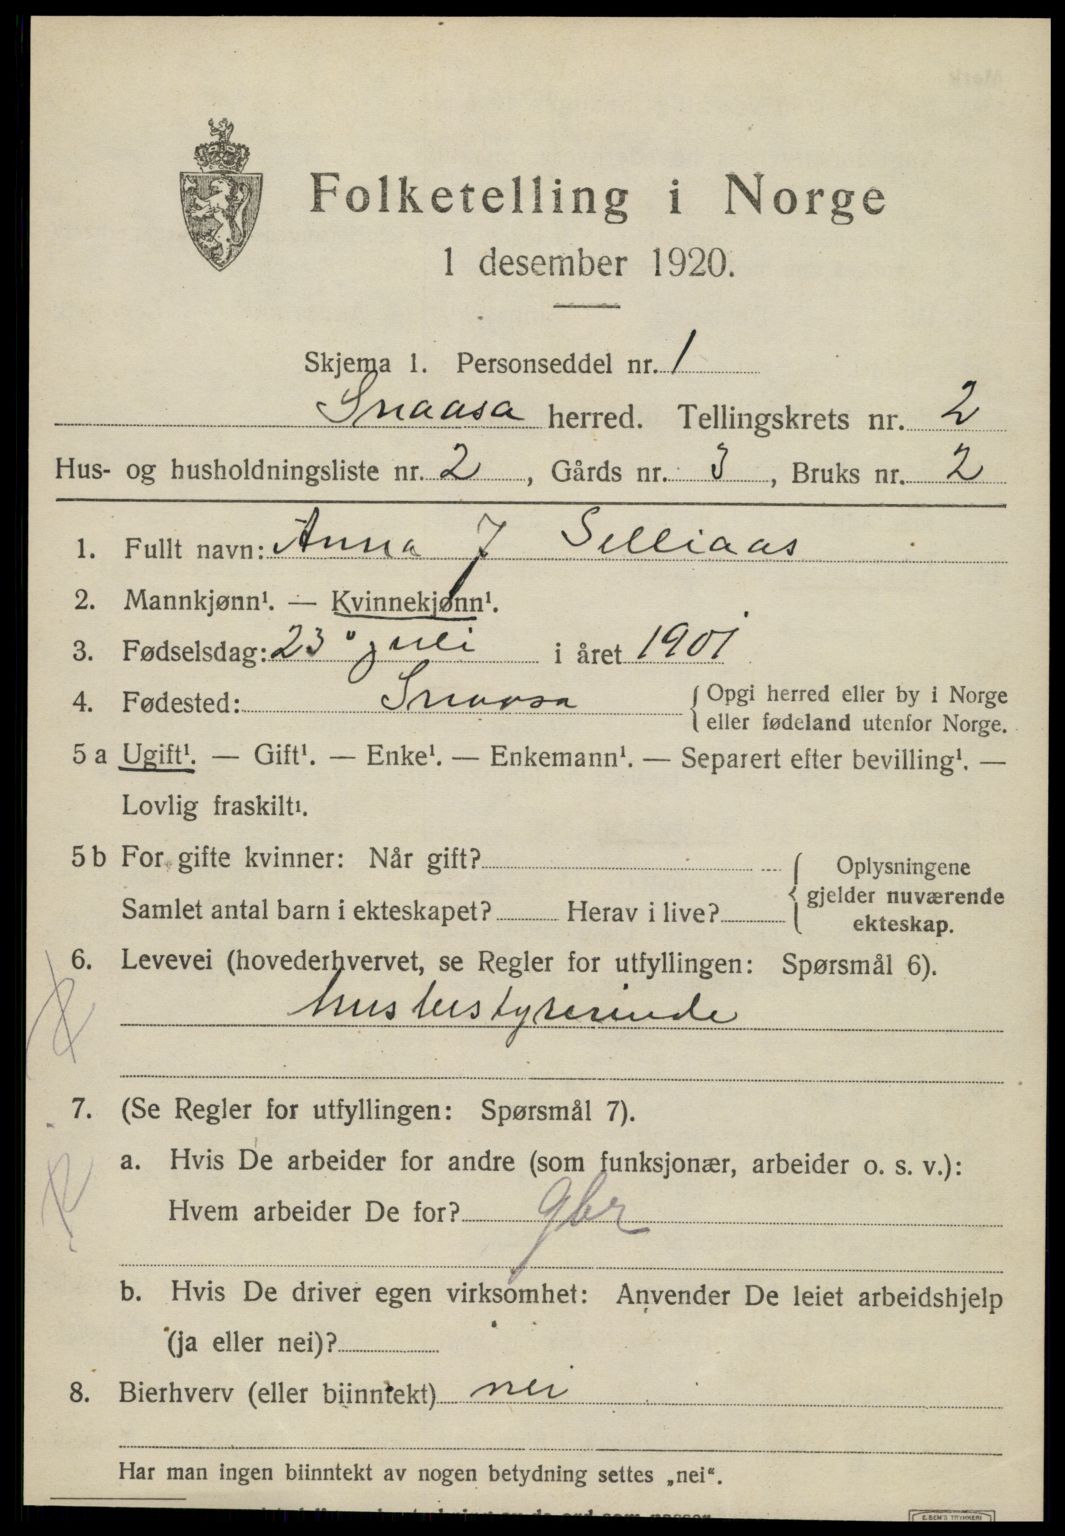 Folketelling i Norge
1 desember 1920.
Skjema 1. Personseddel nr. 1
Snaasa herred. Tellingskrets nr. 2
Hus- og husholdningsliste nr. 2, Gårds nr. 3, Bruks nr. 2
1. Fullt navn: Anna J Selliaas
2. Mannkjønn¹. — Kvinnekjønn¹.
3. Fødselsdag: 23 juli i året 1901
4. Fødested: Snaasa { Opgi herred eller by i Norge
eller fødeland utenfor Norge.
5 a Ugift¹. — Gift¹. — Enke¹. — Enkemann¹. — Separert efter bevilling¹. —
Lovlig fraskilt¹.
5 b For gifte kvinner: Når gift?
Samlet antal barn i ekteskapet? Herav i live?
{ Oplysningene
gjelder nuværende
ekteskap.
6. Levevei (hovederhvervet, se Regler for utfyllingen: Spørsmål 6).
husbestyrerinde
7. (Se Regler for utfyllingen: Spørsmål 7).
a. Hvis De arbeider for andre (som funksjonær, arbeider o. s. v.):
Hvem arbeider De for? gbr
b. Hvis De driver egen virksomhet: Anvender De leiet arbeidshjelp
(ja eller nei)?
8. Bierhverv (eller biinntekt) nei
Har man ingen biinntekt av nogen betydning settes „nei“.